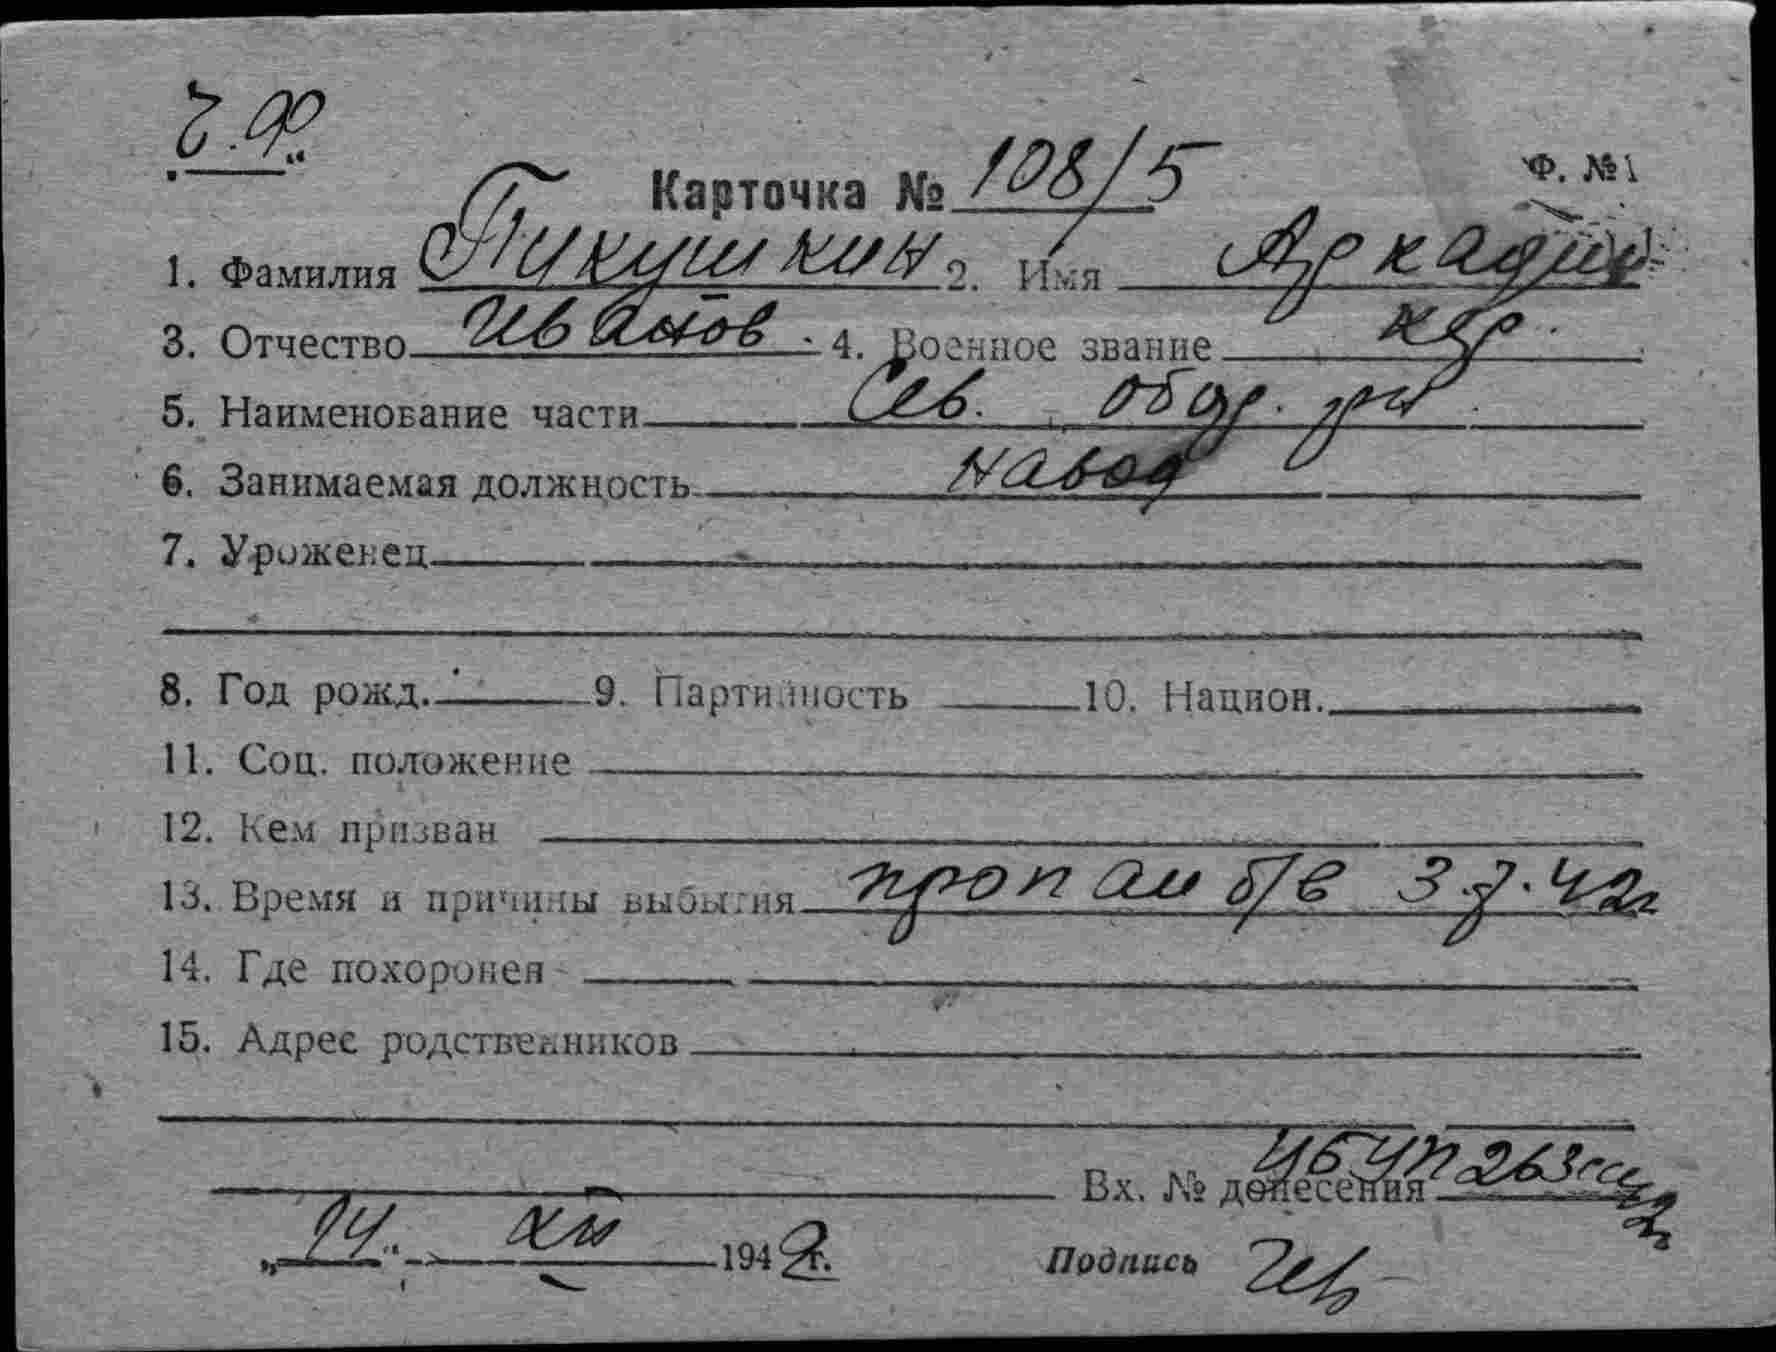 Ч.Ф.
Карточка № 108/5
Ф. №1
1. Фамилия Пикушкин 2. Имя Аркадий
3. Отчество Иванов. 4. Военное звание кр.
5. Наименование части Сев. обор. р-н
6. Занимаемая должность навод
7. Уроженец
8. Год рожд. 9. Партийность 10. Национ.
11. Соц. положение
12. Кем призван
13. Время и причины выбытия пропал б/в 3.7.42г
14. Где похоронен
15. Адрес родственников
Вх. № донесения
„14“ XII 1942г. Подпись